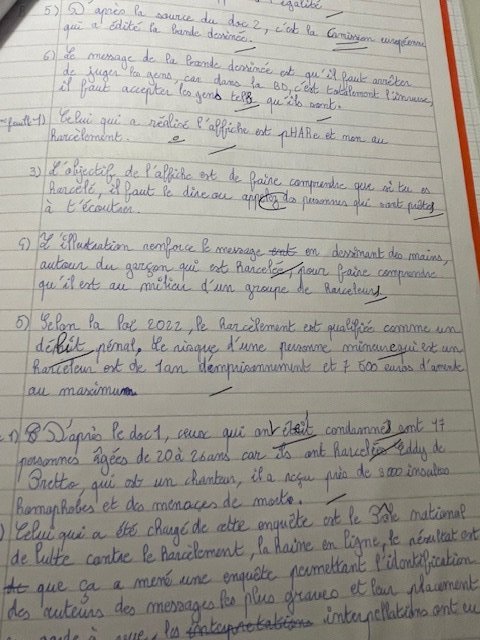 égalité
5) D'après la source du doc 2, c'est la Comission européenne
qui a édité la bande dessinée.
6) Le message de la bande dessinée est qu'il faut arrêter
de juger les gens, car dans la BD, c'est totalement l'inverse,
il faut accepter les gens tels qu'ils sont.
1) Celui qui a réalisé l'affiche est pHARe et non au
harcèlement.
3) L'objectif de l'affiche est de faire comprendre que si tu es
harcelé, il faut le dire ou appelez des personnes qui sont prêtes
à t'écouter.
4) L'illustration renforce le message en dessinant des mains,
autour du garçon qui est harcelée, pour faire comprendre
qu'il est au milieu d'un groupe de harceleurs
5) Selon la loi 2022, le harcèlement est qualifiée comme un
délit pénal. Le risque d'une personne mineure qui est un
harceleur est de 1 an d'emprisonnement et 7 500 euros d'amente
au maximum
1) D'après le doc 1, ceux qui ont était condamnés sont 17
personnes âgées de 20 à 26 ans car ils ont harcelés Eddy de
Pretto qui est un chanteur, il a reçu près de 3 000 insultes
homophobes et des menaces de morts.
) Celui qui a été chargé de cette enquête est le Pôle national
de lutte contre le harcèlement, la haine en ligne, le résultat est
que ça a mené une enquête permettant l'identification
des auteurs des messages les plus graves et leur placement
garde à vue, les interpretations interpellations ont eu